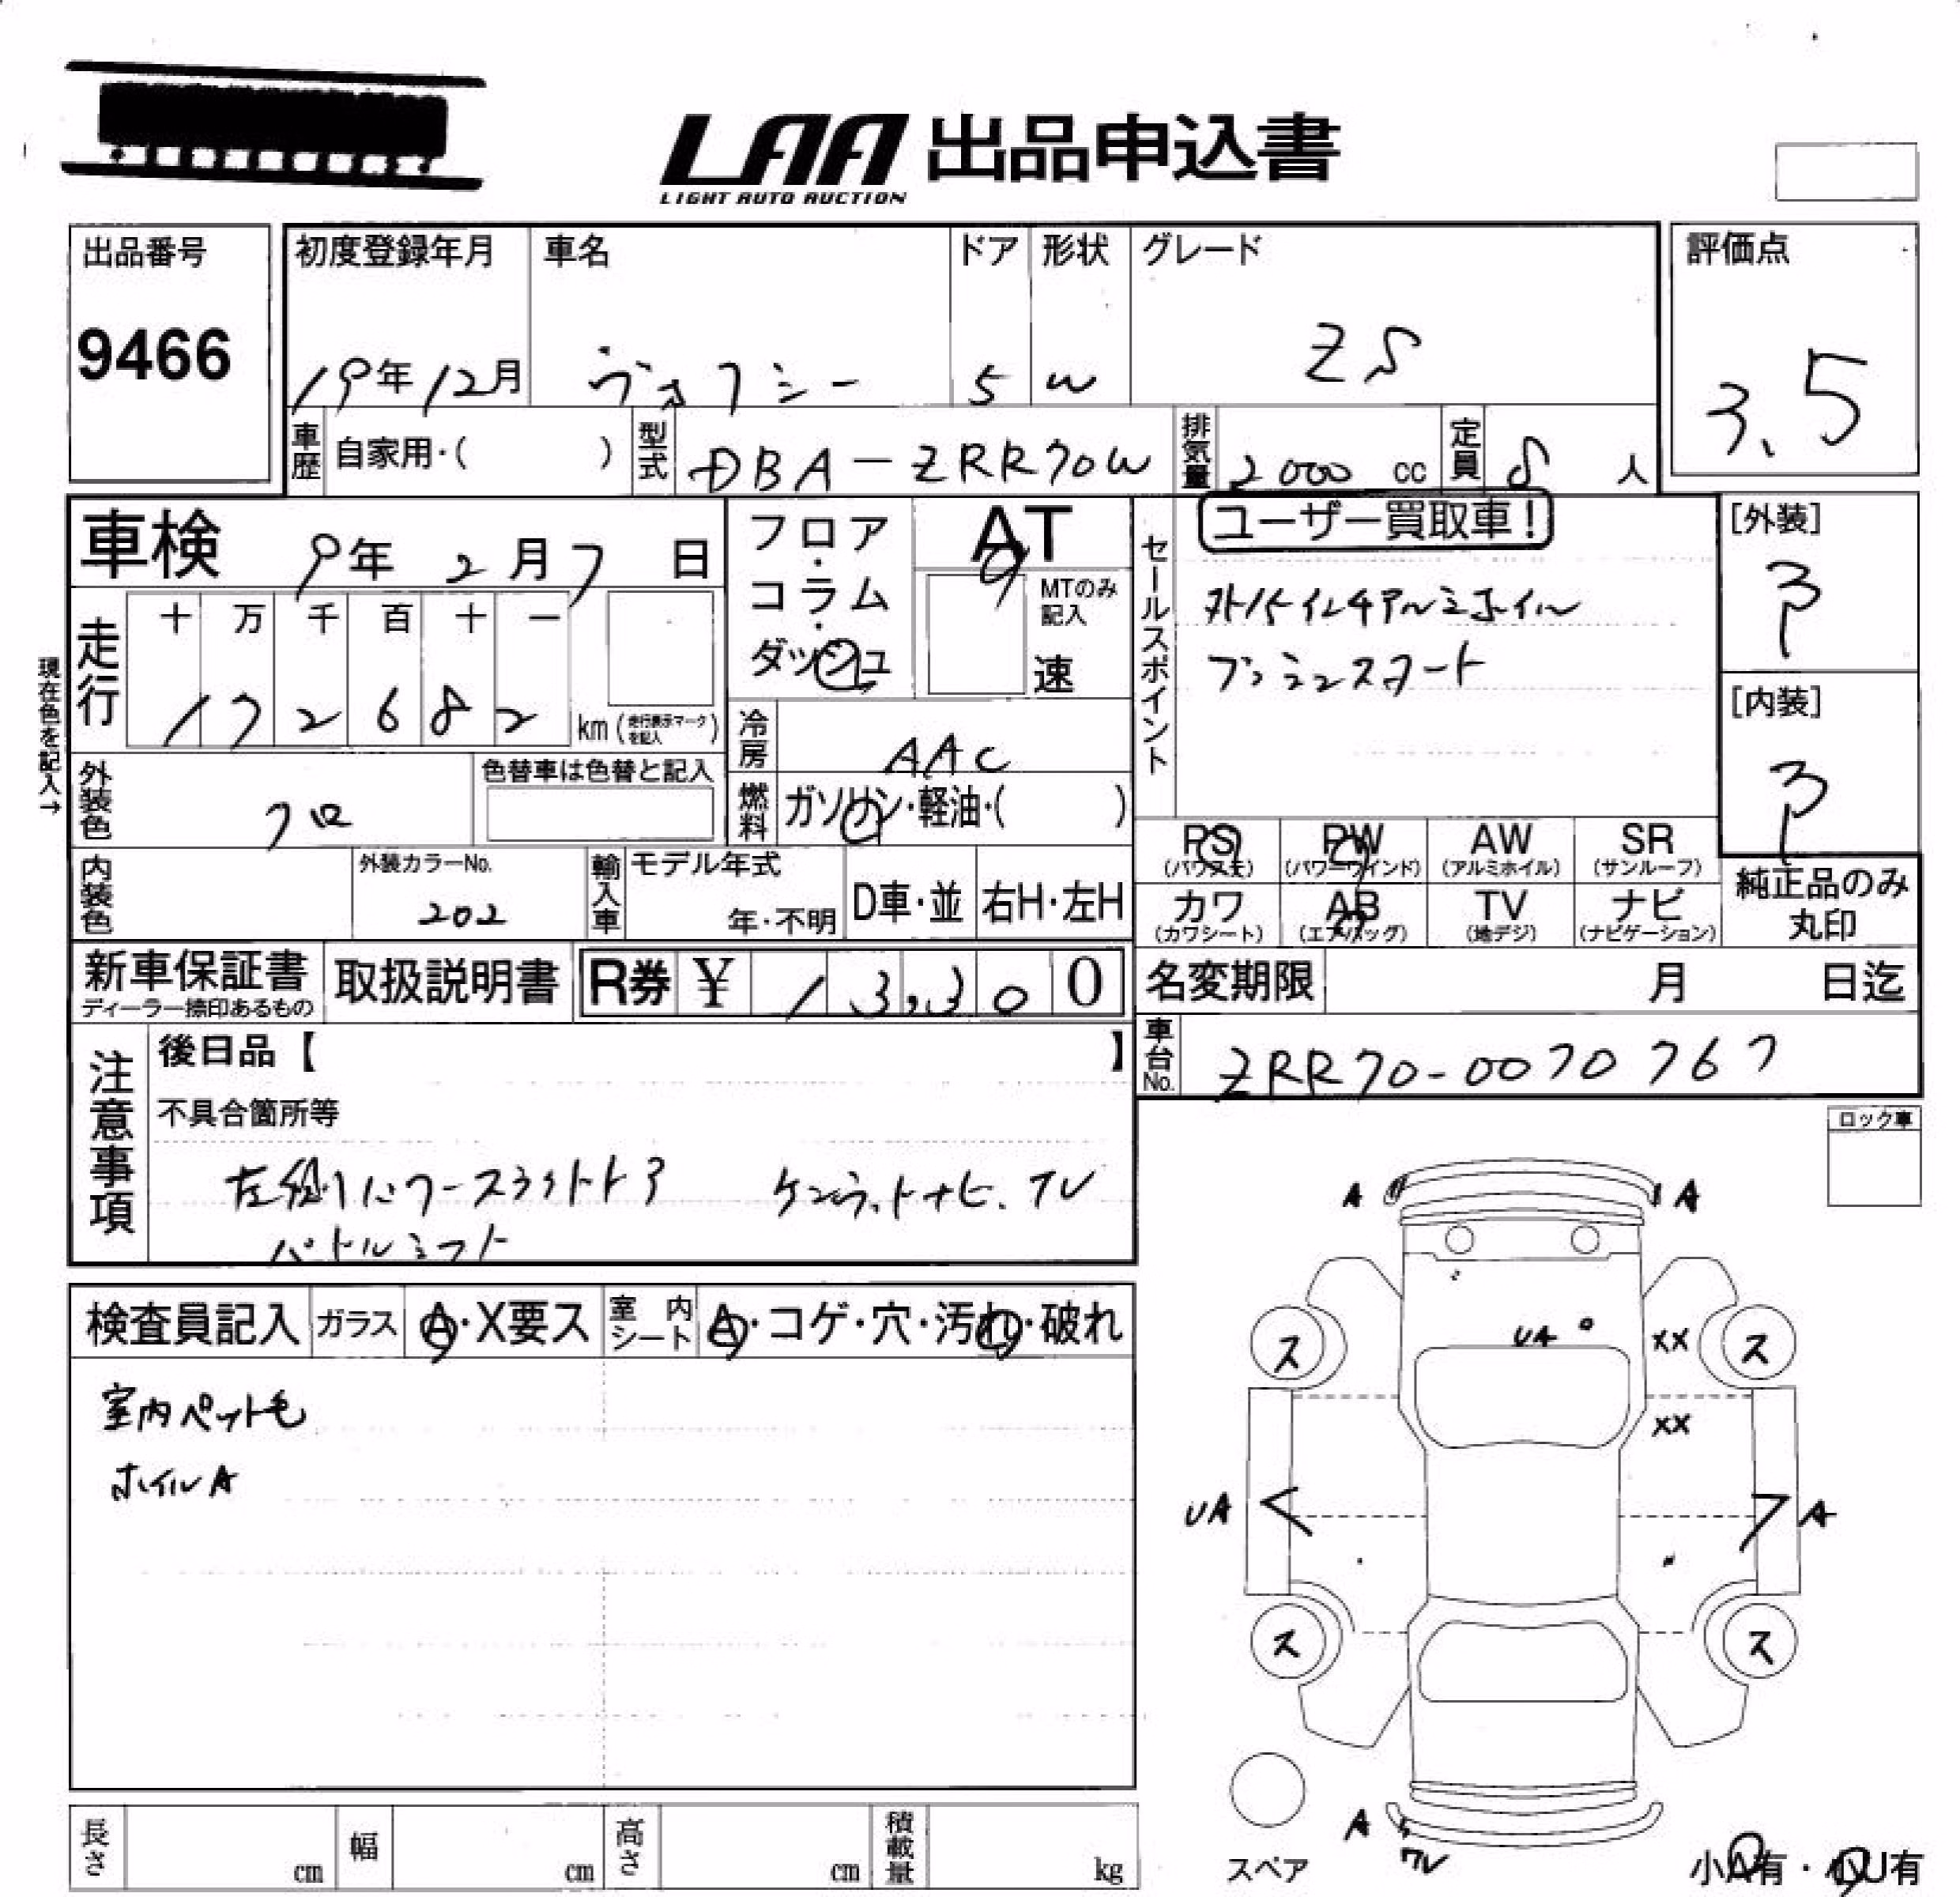 LAA 出品申込書
LIGHT AUTO AUCTION
出品番号
9466
初度登録年月 車名 ドア 形状 グレード
19年12月 ヴォクシー 5 W ZS
評価点
3.5
車歴 自家用・( ) 型式 DBA-ZRR70W 排気量 2000 cc 定員 8 人
車検 9年 2月 7日
走行 十 万 千 百 十 一
172682 km (走行表示マークを記入)
現在色を記入→
外装色 クロ 色替車は色替と記入
内装色 外装カラーNo. 202
輸入車 モデル年式 年・不明 D車・並 右H・左H
フロア・コラム・ダッシュ
AT
MTのみ記入
速
冷房 AAC
燃料 ガソリン・軽油・( )
セールスポイント
ユーザー買取車!
外15インチアルミホイル
プッシュスタート
[外装]
3
[内装]
3
PS (パワステ) PW (パワーウインド) AW (アルミホイル) SR (サンルーフ)
カワ (カワシート) AB (エアバッグ) TV (地デジ) ナビ (ナビゲーション)
純正品のみ丸印
新車保証書 ディーラー捺印あるもの 取扱説明書 R券 ¥ 13,300
名変期限 月 日迄
車台No. ZRR70-0070767
注意事項
後日品【 】
不具合箇所等
左側パワースライドドア ケンウッドナビ、TV
パドルシフト
ロック車
検査員記入 ガラス A・X要ス 室内シート A・コゲ・穴・汚れ・破れ
室内ペット毛
ホイルA
A A
UA
XX
ス ス
XX
UA A
ス ス
A
ワレ
スペア
小A有・小U有
長さ cm 幅 cm 高さ cm 積載量 kg